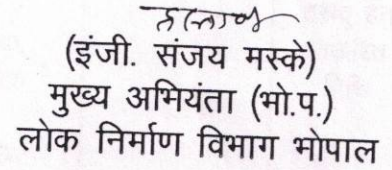 (इंजी. संजय मस्के)
मुख्य अभियंता (भो.प.)
लोक निर्माण विभाग भोपाल